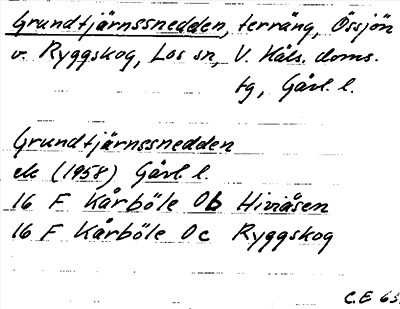 Grundtjärnssnedden, terräng, Össjön
v. Ryggskog, Los sn, V. Häls. doms.
tg, Gävl. l.
Grundtjärnssnedden
ek (1958) Gävl l.
16 F Kårböle 0b Hiviåsen
16 F Kårböle 0c Ryggskog
C.E 63